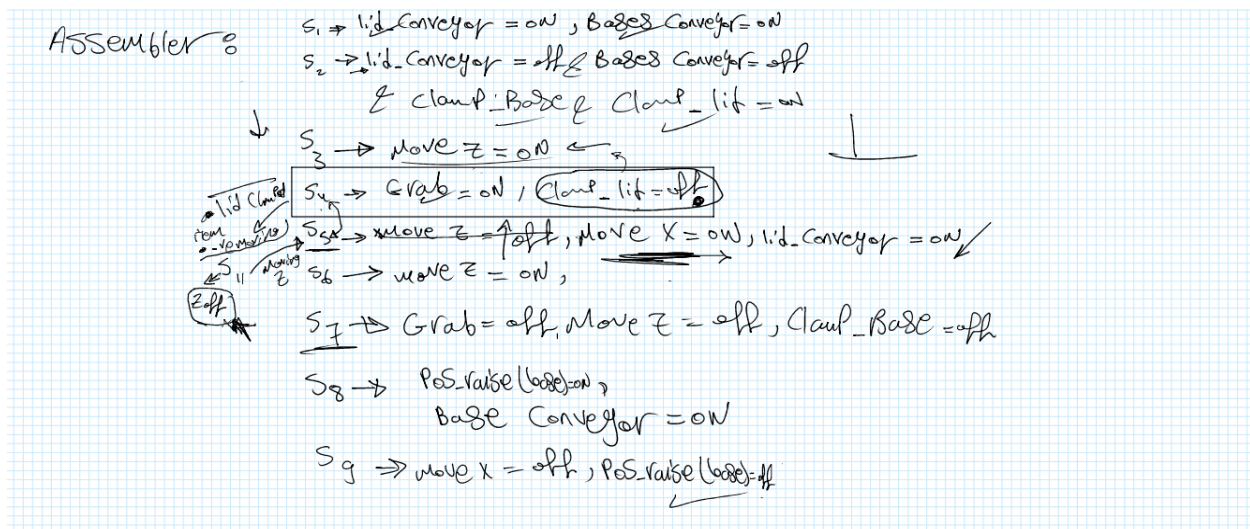 Assembler:
S1 → lid_Conveyor = ON, Bases Conveyor = ON
S2 → lid_Conveyor = off & Bases Conveyor = off
& Clamp_Base & Clamp_lit = ON
S3 → Move Z = ON
S4 → Grab = ON, Clamp_lit = off
lid Clamped
S5 → Move Z = off, Move X = ON, lid_Conveyor = ON
S11 Moving Z
S6 → move Z = ON,
Z off
S7 → Grab = off, Move Z = off, Clamp_Base = off
S8 → Pos_raise(base)=ON,
Base Conveyor = ON
S9 → move X = off, Pos_raise(base)=off